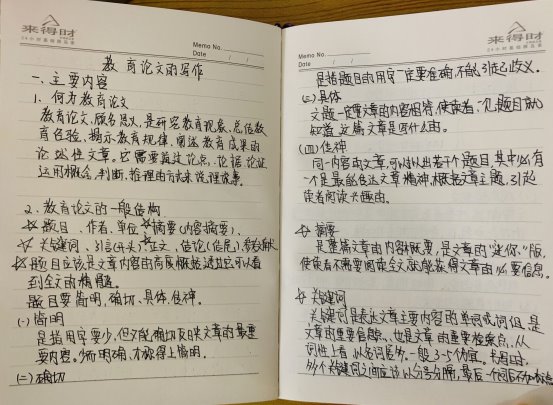 来得财
24小时基础服务费
Memo No.
Date / /
教育论文的写作
一、主要内容
1、何为教育论文
教育论文,顾名思义,是研究教育现象,总结教
育经验、揭示教育规律、阐述教育成果的
论述性文章。它需要通过论点、论据论证
运用概念、判断、推理的方式来说理叙事。
2、教育论文的一般结构
☆题目、作者、单位☆摘要(内容摘要)、
☆关键词、引言(开头)☆正文、结论(结尾)参考文献
☆题目应该是文章内容的高度概括透过它可以看
到全文的精髓。
题目要简明、确切、具体、传神。
(一)简明
是指用字要少,但又能确切反映文章的最重
要内容。少而明确,才称得上简明。
(二)确切
Memo No.
Date / /
来得财
24小时基础服务费
是指题目的用字一定要准确,不能引起歧义。
(三)具体
文题一定要与文章的内容相符,使读者一见题目就
知道这篇文章是写什么的。
(四)传神
同一内容的文章,可以拟出若干个题目,其中必有
一个是最能传达文章精神,概括文章主题,引起
读者阅读兴趣的。
☆ 摘要
是整篇文章的内容概要,是文章的“迷你”版,
使读者不需要阅读全文就能获得文章的必要信息。
☆ 关键词
关键词是表达文章主要内容的单词或词组,是
文章的重要信息,也是文章的重要检索点,从
词性上看,以名词居多,一般3-5个为宜。
多个关键词之间应该以分号分隔,最后一个词后不加标点